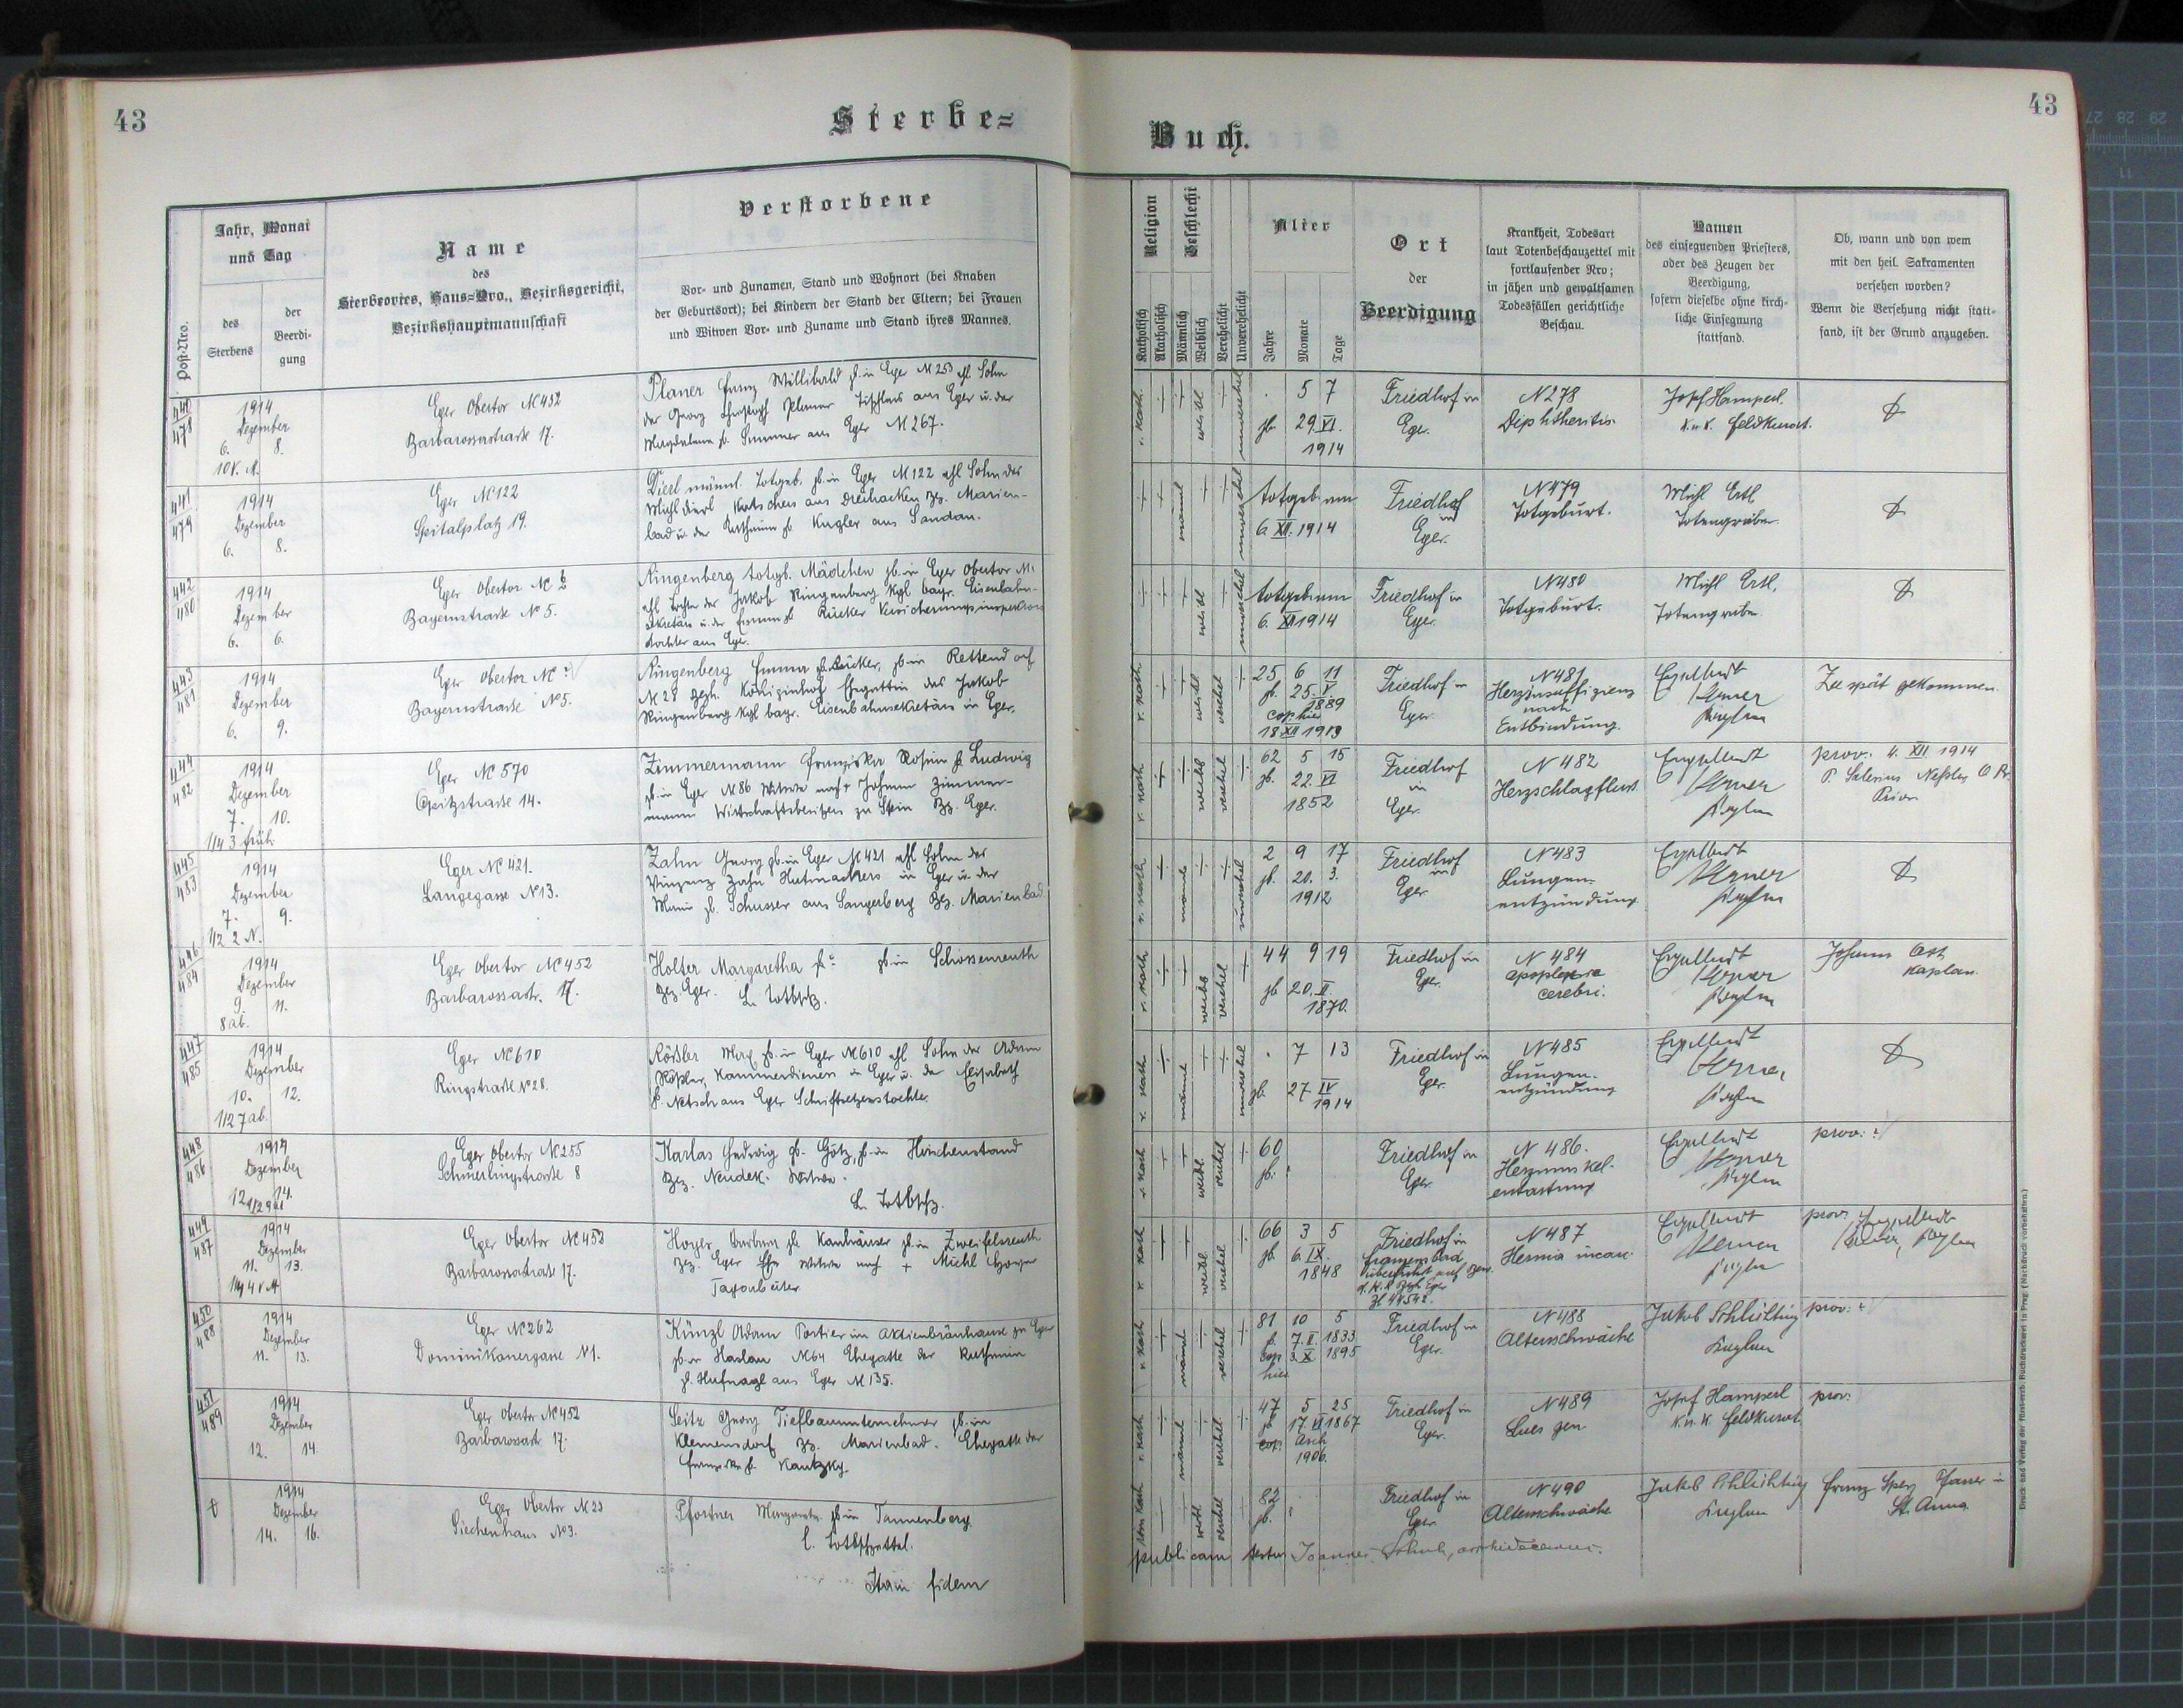 43
Sterbe=
Buch.
43
Post-Nro.
Jahr, Monat
und Tag
des
Sterbens
der
Beerdi-
gung
Name
des
Sterbeortes, Haus=Nro., Bezirksgericht,
Bezirkshauptmannschaft
Verstorbene
Vor- und Zunamen, Stand und Wohnort (bei Knaben
der Geburtsort); bei Kindern der Stand der Eltern; bei Frauen
und Witwen Vor- und Zuname und Stand ihres Mannes.
Religion
Katholisch
Akatholisch
Geschlecht
Männlich
Weiblich
Verehelicht
Unverehelicht
Alter
Jahre
Monate
Tage
Ort
der
Beerdigung
Krankheit, Todesart
laut Totenbeschauzettel mit
fortlaufender Nro;
in jähen und gewaltsamen
Todesfällen gerichtliche
Beschau.
Namen
des einsegnenden Priesters,
oder des Zeugen der
Beerdigung,
sofern dieselbe ohne kirch-
liche Einsegnung
stattfand.
Ob, wann und von wem
mit den heil. Sakramenten
versehen worden?
Wenn die Versehung nicht statt-
fand, ist der Grund anzugeben.
440
478
1914
Dezember
6. 8.
10 V. M.
Eger Obertor No 452
Barbarossastraße 17.
Planer Franz Willibald gb. in Eger No 253 ehl Sohn
des Georg Christoph Planer Tischlers aus Eger u. der
Magdalena gb. Summer aus Eger No 267.
r. kath.
unverehel
5 7
gb. 29. VI.
1914
Friedhof in
Eger.
N 278
Diphtheritis.
Josef Hamperl.
k. u. k. Feldkurat.
441
479
1914
Dezember
6. 8.
Eger No 122
Spitalplatz 19.
Dierl männl. Totgeb. gb. in Eger No 122 ehl Sohn des
Michl Dierl, Kutschers aus Dreihacken Bz. Marien-
bad u. der Katharina gb. Kugler aus Sandau.
männl
unverehel
totgeb. am
6. XII. 1914
Friedhof
in
Eger.
N 479
Totgeburt.
Michl Ertl
Totengräber.
442
480
1914
Dezember
6. 6.
Eger Obertor No
Bayernstraße No 5.
Ringenberg totgb. Mädchen gb. in Eger Obertor No
ehl Tochter des Jakob Ringenberg kgl. bayr. Eisenbahn-
sekretärs u. der Emma gb. Rücker Versicherungsinspektors
tochter aus Eger.
weibl
unverehel
totgeb. am
6. XII 1914
Friedhof in
Eger.
N 480
Totgeburt.
Michl Ertl,
Totengräber
443
481
1914
Dezember
6. 9.
Eger Obertor No ?
Bayernstraße No 5.
Ringenberg Emma gb. Rücker, gb. in Rettendorf
No 28 Bezh. Königinhof Ehegattin des Jakob
Ringenberg kgl bayr. Eisenbahnsekretärs in Eger.
r. kath
weibl
verehel
25 6 11
gb. 25. V.
1889
cop. hier
18 XII 1913
Friedhof in
Eger
N 481
Herzinsuffizienz
nach
Entbindung.
Engelbert
Werner
Kaplan
Zu spät gekommen.
444
482
1914
Dezember
7. 10.
1/4 3 früh
Eger No 570
Opitzstraße 14.
Zimmermann Franziska Rosina gb. Ludwig
gb. in Eger No 86 Witwe nach + Johann Zimmer-
mann Wirtschaftsbesitzers zu Stein Bz. Eger.
r. kath
weibl
verehel
62 5 15
gb. 22. VI
1852
Friedhof
in
Eger.
N 482
Herzschlagfluss.
Engelbert
Werner
Kaplan
prov. 4. XII 1914
Prior
445
483
1914
Dezember
7. 9.
1/2 2 N.
Eger No 421.
Langegasse No 13.
Zahn Georg gb. in Eger No 421 ehl Sohn des
Vinzenz Zahn Hutmachers in Eger u. der
Maria gb. Schusser aus Sangerberg Bz. Marienbad
r. kath
männl
unverehel
2 9 17
gb. 20. 3.
1912
Friedhof
in
Eger
N 483
Lungen-
entzündung
Engelbert
Werner
Kaplan
446
484
1914
Dezember
9. 11.
8 ab.
Eger Obertor No 452
Barbarossastr. 17.
Holter Margaretha gb. ? gb. in Schossenreuth
Bez. Eger. L. Totbschz.
r. kath
weibl
verehel
44 9 19
gb 20. II.
1870.
Friedhof in
Eger.
N 484
apoplexia
cerebri.
Engelbert
Werner
Kaplan
Johann Ast
Kaplan.
447
485
1914
Dezember
10. 12.
1/2 7 ab.
Eger No 610
Ringstraße No 28.
Rößler Max gb. in Eger No 610 ehl Sohn des Adam
Rößler, Kammerdieners in Eger u. der Elisabeth
gb. Netsch aus Eger Schriftsetzerstochter.
r. kath
männl
unverehel
7 13
gb. 27 IV
1914
Friedhof in
Eger.
N 485
Lungen-
entzündung
Engelbert
Werner
Kaplan
448
486
1914
Dezember
12. 14.
1/2 9 ab
Eger Obertor No 255
Schmerlingstraße 8
Karlas Hedwig gb. Götz, gb. in Hirschenstand
Bez. Neudek. Witwe.
L. Totbschz.
r. kath
weibl.
verehel
60
gb. ?
Friedhof in
Eger.
N 486.
Herzmuskel-
entartung
Engelbert
Werner
Kaplan
prov. ?
449
487
1914
Dezember
11. 13.
Eger Obertor No 452
Barbarossastraße 17.
Hoyer Barbara gb. Kanhäuser gb. in Zweifelsreuth
Bez. Eger Witwe nach + Michl Hoyer
Tagarbeiter
r. kath
weibl
verehel
66 3 5
gb. 6. IX.
1848
Friedhof in
Franzensbad
überführt
Zl 44542.
N 487
Hernia incarc.
Engelbert
Werner
Kaplan
prov. Engelbert
Werner, Kaplan
450
488
1914
Dezember
11. 13.
Eger No 262
Dominikanergasse No 1.
Künzl Adam Portier im Aktienbräuhause zu Eger
gb. in Haslau No 64 Ehegatte der Katharina
gb. Hufnagl aus Eger No 135.
r. kath
männl
verehel
81 10 5
gb. 7. II 1833
Cop. 3. X 1895
hier
Friedhof in
Eger.
N 488
Altersschwäche
Jakob Schlichting
Kaplan
prov. ?
451
489
1914
Dezember
12. 14.
Eger Obertor No 452
Barbarossastr. 17.
Seitz Georg Tiefbauunternehmer gb. in
Klemensdorf Bz. Marienbad. Ehegatte der
Franziska gb. Kautzky.
r. kath
männl
verehel
47 5 25
gb 17 VI 1867
cop. Asch
1906.
Friedhof in
Eger.
N 489
Lues gen
Josef Hamperl
k. u. k. Feldkurat
prov.
1914
Dezember
14. 16.
Eger Obertor No 23
Siechenhaus No 3.
Pfortner Margareta gb in Tannenberg
l. Totbschzettel.
röm kath
weibl
verehel
82
gb. ?
Friedhof in
Eger.
N 490
Altersschwäche
Jakob Schlichting
Kaplan
Pfarrer in
St. Anna.
fidem
publicam testor Joannes
Druck und Verlag der Fürsterzb. Buchdruckerei in Prag. (Nachdruck vorbehalten.)